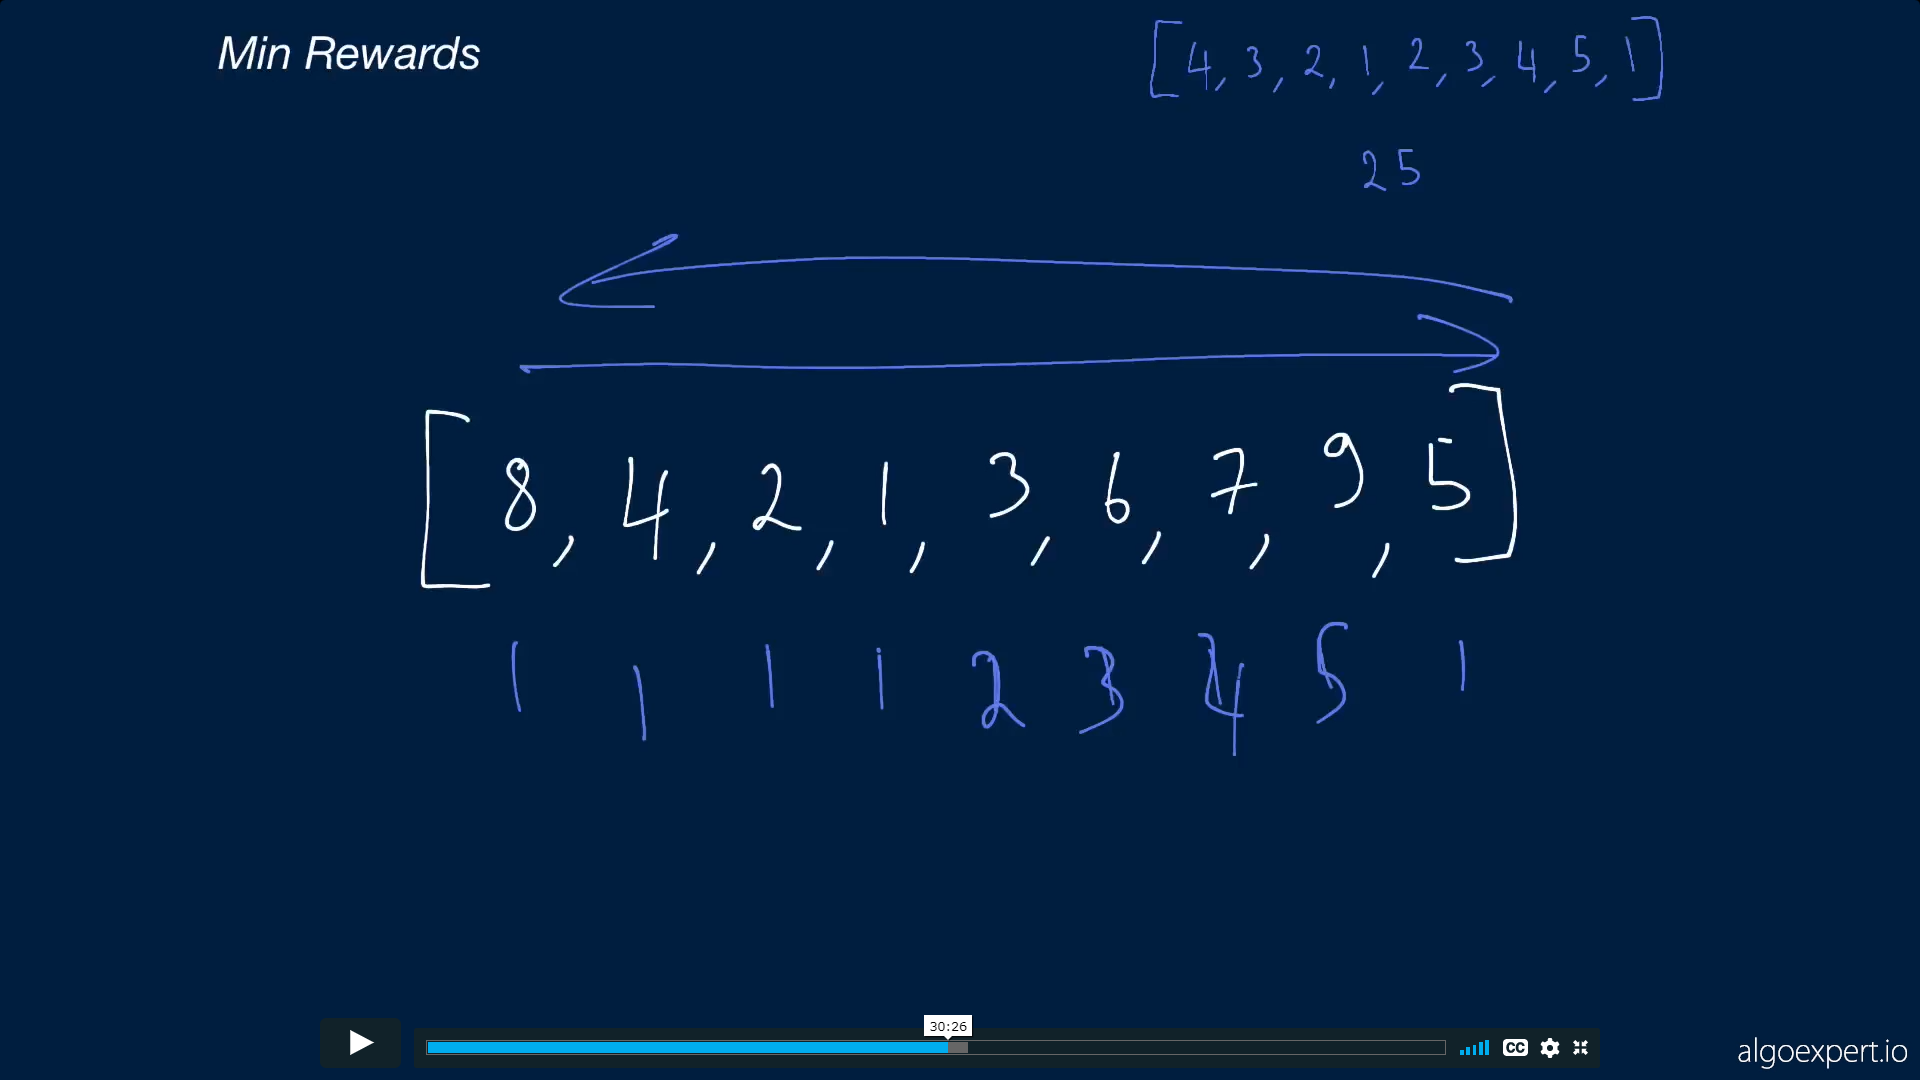 Min Rewards
[4, 3, 2, 1, 2, 3, 4, 5, 1]
25
[8, 4, 2, 1, 3, 6, 7, 9, 5]
1 1 1 1 2 3 4 5 1
30:26
CC
algoexpert.io